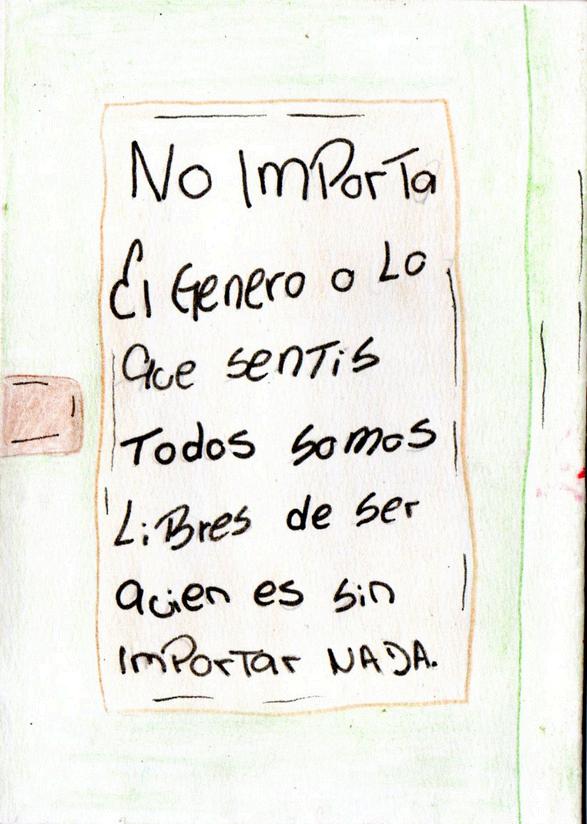 No ImPorTa
El Genero o Lo
que senTis
Todos somos
LiBres de ser
quien es sin
ImPorTar NADA.